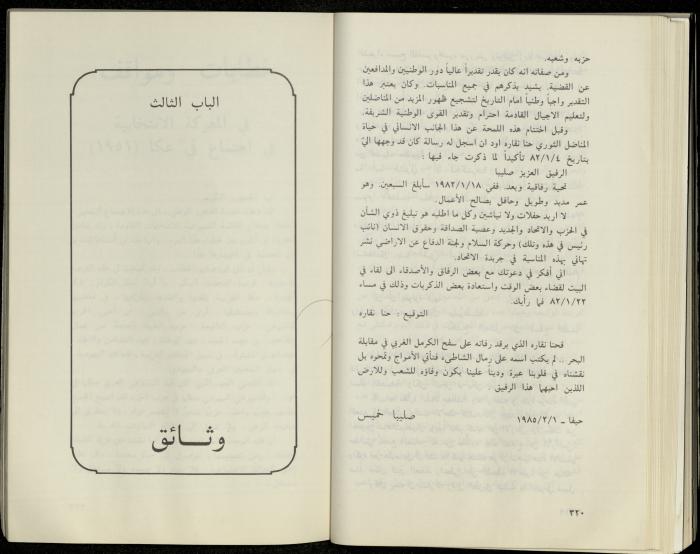 حزبه وشعبه.
ومن صفاته انه كان يقدر تقديراً عالياً دور الوطنيين والمدافعين
عن القضية. يشيد بذكرهم في جميع المناسبات. وكان يعتبر هذا
التقدير واجباً وطنياً امام التاريخ لتشجيع ظهور المزيد من المناضلين
ولتعليم الاجيال القادمة احترام وتقدير القوى الوطنية الشريفة.
وقبل اختتام هذه اللمحة عن هذا الجانب الانساني في حياة
المناضل الثوري حنا نقاره اود ان اسجل له رسالة كان قد وجهها اليّ
بتاريخ ٨٢/١/٤ تأكيداً لما ذكرت جاء فيها :
الرفيق العزيز صليبا
تحية رفاقية وبعد. ففي ١٩٨٢/١/١٨ سأبلغ السبعين. وهو
عمر مديد وطويل وحافل بصالح الأعمال.
لا اريد حفلات ولا نياشين وكل ما اطلبه هو تبليغ ذوي الشأن
في الحزب والاتحاد والجديد وعصبة الصداقة وحقوق الانسان (نائب
رئيس في هذه وتلك) وحركة السلام ولجنة الدفاع عن الاراضي نشر
تهاني بهذه المناسبة في جريدة الاتحاد.
اني أفكر في دعوتك مع بعض الرفاق والأصدقاء الى لقاء في
البيت لقضاء بعض الوقت واستعادة بعض الذكريات وذلك في مساء
٨٢/١/٢٢ فما رأيك.
التوقيع : حنا نقاره
فحنا نقاره الذي يرقد رفاته على سفح الكرمل الغربي في مقابلة
البحر .. لم يكتب اسمه على رمال الشاطىء فتأتي الأمواج وتمحوه بل
نقشناه في قلوبنا عبرة وديناً علينا يكون وفاؤه للشعب وللارض
اللذين احبهما هذا الرفيق .
حيفا ـ ١٩٨٥/٢/١ صليبا خميس
٣٢٠
الباب الثالث
وثائق